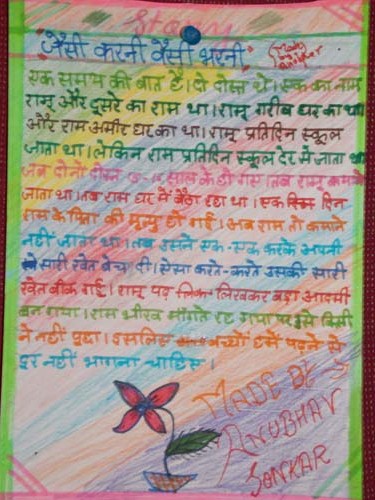 Story
"जैसी करनी वैसी भरनी"
एक समय की बात है। दो दोस्त थे। एक का नाम
रामू और दूसरे का राम था। रामू गरीब घर का था
और राम अमीर घर का था। रामू प्रतिदिन स्कूल
जाता था। लेकिन राम प्रतिदिन स्कूल देर में जाता था
जब दोनों दोस्त साल के हो गए। तब रामू कमाने
जाता था। तब राम घर में बैठा रहा था। एक दिन
राम के पिता की मृत्यु हो गई। अब राम तो कमाने
नहीं जाता था। तब उसने एक-एक करके अपनी
सारी खेत बेच दी। ऐसा करते-करते उसकी सारी
खेत बीक गई। रामू पढ़ लिख लिखकर बड़ा आदमी
बन गया। राम भीख माँगते रह गया पर इसे किसी
ने नहीं पुछा। इसलिए बच्चों हमें पढ़ने से
दूर नहीं भागना चाहिए।
MADE BY →
ANUBHAV
SONKAR